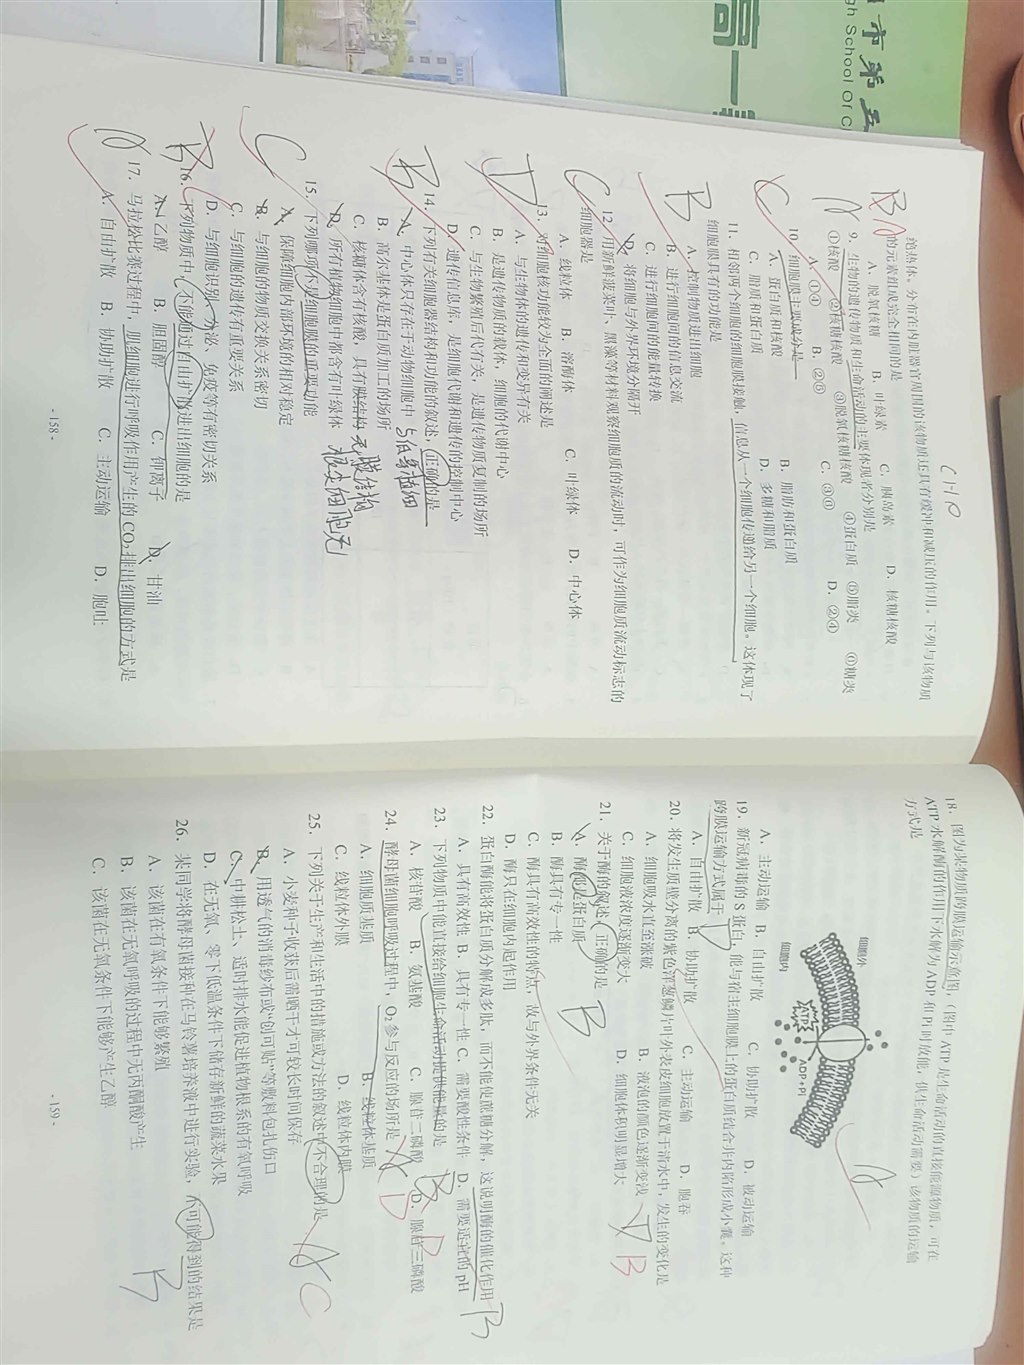 市第五
高一
gh School Of C
绝热体。分布在内脏器官周围的该物质还具有缓冲和减压的作用。下列与该物质
的元素组成完全相同的是
A. 脱氧核糖 B. 叶绿素 C. 胰岛素 D. 核糖核酸
9. 生物的遗传物质和生命活动的主要体现者分别是
①核酸 ②核糖核酸 ③脱氧核糖核酸 ④蛋白质 ⑤脂类 ⑥糖类
A. ①④ B. ②⑤ C. ③④ D. ②④
10. 细胞膜主要成分是
A. 蛋白质和核酸 B. 脂肪和蛋白质
C. 脂质和蛋白质 D. 多糖和脂质
11. 相邻两个细胞的细胞膜接触,信息从一个细胞传递给另一个细胞。这体现了
细胞膜具有的功能是
A. 控制物质进出细胞
B. 进行细胞间的信息交流
C. 进行细胞间的能量转换
D. 将细胞与外界环境分隔开
12. 用新鲜菠菜叶、黑藻等材料观察细胞质的流动时,可作为细胞质流动标志的
细胞器是
A. 线粒体 B. 溶酶体 C. 叶绿体 D. 中心体
13. 对细胞核功能较为全面的阐述是
A. 与生物体的遗传和变异有关
B. 是遗传物质的载体,细胞的代谢中心
C. 与生物繁殖后代有关,是遗传物质复制的场所
D. 遗传信息库,是细胞代谢和遗传的控制中心
14. 下列有关细胞器结构和功能的叙述,正确的是
A. 中心体只存在于动物细胞中
B. 高尔基体是蛋白质加工的场所
C. 核糖体含有核酸,具有膜结构 无膜结构
D. 所有植物细胞中都含有叶绿体 根尖细胞无
15. 下列哪项不是细胞膜的重要功能
A. 保障细胞内部环境的相对稳定
B. 与细胞的物质交换关系密切
C. 与细胞的遗传有重要关系
D. 与细胞识别、分泌、免疫等有密切关系
16. 下列物质中,不能通过自由扩散进出细胞的是
A. 乙醇 B. 胆固醇 C. 钾离子 D. 甘油
17. 马拉松比赛过程中,肌细胞进行呼吸作用产生的 CO₂ 排出细胞的方式是
A. 自由扩散 B. 协助扩散 C. 主动运输 D. 胞吐
- 158 -
18. 图为某物质跨膜运输示意图,(图中 ATP 是生命活动的直接能源物质,可在
ATP 水解酶的作用下水解为 ADP 和 Pi 时放能,供生命活动需要)该物质的运输
方式是
细胞外
细胞内
ATP
ADP+Pi
A. 主动运输 B. 自由扩散 C. 协助扩散 D. 被动运输
19. 新冠病毒的 S 蛋白,能与宿主细胞膜上的蛋白质结合并内陷形成小囊。这种
跨膜运输方式属于 D
A. 自由扩散 B. 协助扩散 C. 主动运输 D. 胞吞
20. 将发生质壁分离的紫色洋葱鳞片叶外表皮细胞放置于清水中,发生的变化是
A. 细胞吸水直至涨破 B. 液泡的颜色逐渐变浅
C. 细胞液浓度逐渐变大 D. 细胞体积明显增大
21. 关于酶的叙述,正确的是
A. 酶都是蛋白质
B. 酶具有专一性
C. 酶具有高效性的特点,故与外界条件无关
D. 酶只在细胞内起作用
22. 蛋白酶能将蛋白质分解成多肽,而不能使蔗糖分解,这说明酶的催化作用 B
A. 具有高效性 B. 具有专一性 C. 需要酸性条件 D. 需要适宜的 pH
23. 下列物质中能直接给细胞生命活动提供能量的是
A. 核苷酸 B. 氨基酸 C. 腺苷二磷酸 D. 腺苷三磷酸
24. 酵母菌细胞呼吸过程中,O₂ 参与反应的场所是
A. 细胞质基质 B. 线粒体基质
C. 线粒体外膜 D. 线粒体内膜
25. 下列关于生产和生活中的措施或方法的叙述中不合理的是
A. 小麦种子收获后需晒干才可较长时间保存
B. 用透气的消毒纱布或“创可贴”等敷料包扎伤口
C. 中耕松土、适时排水能促进植物根系的有氧呼吸
D. 在无氧、零下低温条件下储存新鲜的蔬菜水果
26. 某同学将酵母菌接种在马铃薯培养液中进行实验,不可能得到的结果是
A. 该菌在有氧条件下能够繁殖
B. 该菌在无氧呼吸的过程中无丙酮酸产生
C. 该菌在无氧条件下能够产生乙醇
- 159 -